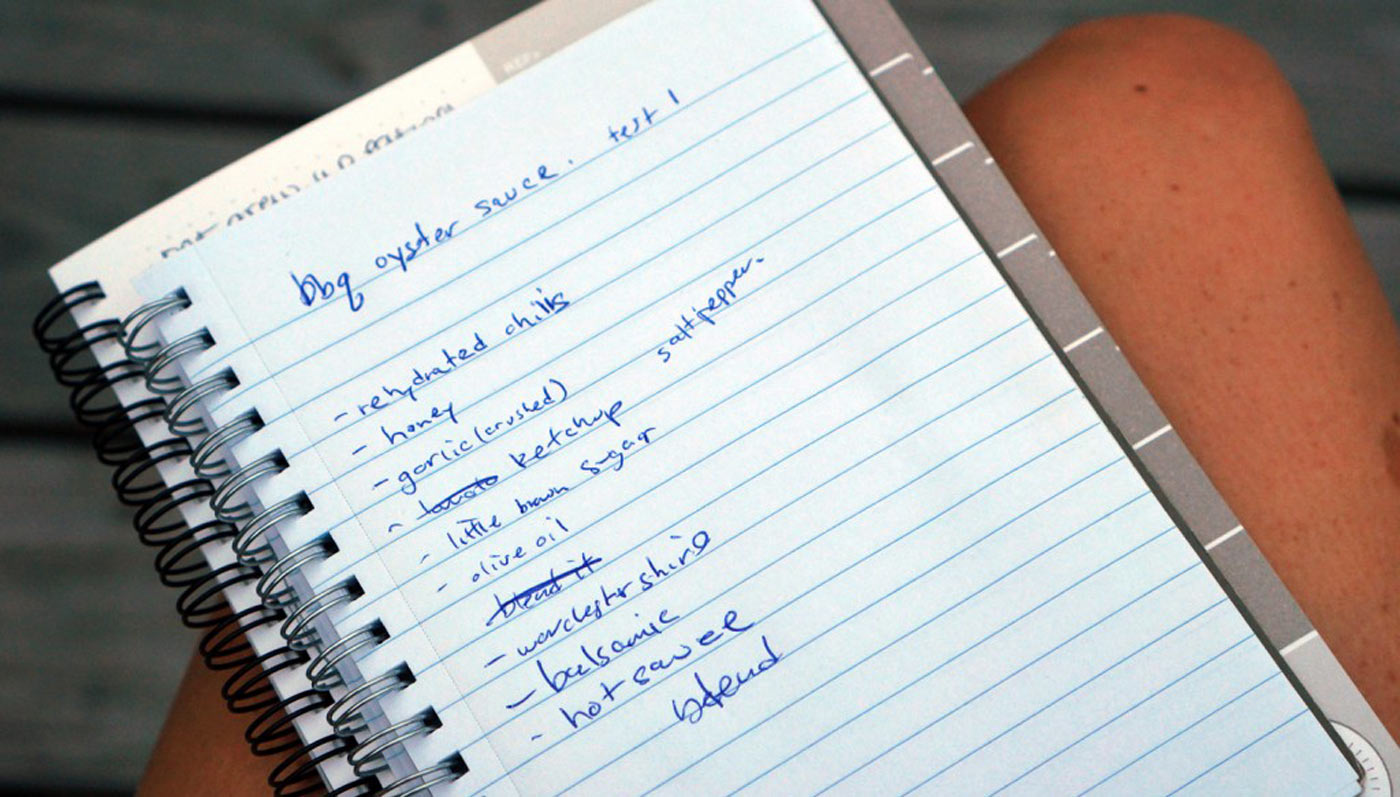 bbq oyster sauce. test 1
- rehydrated chilis
salt pepper.
- honey
- garlic (crushed)
- tomato ketchup
- little brown sugar
- olive oil
blend it
- worchestershire
- balsamic
- hot sauce
blend